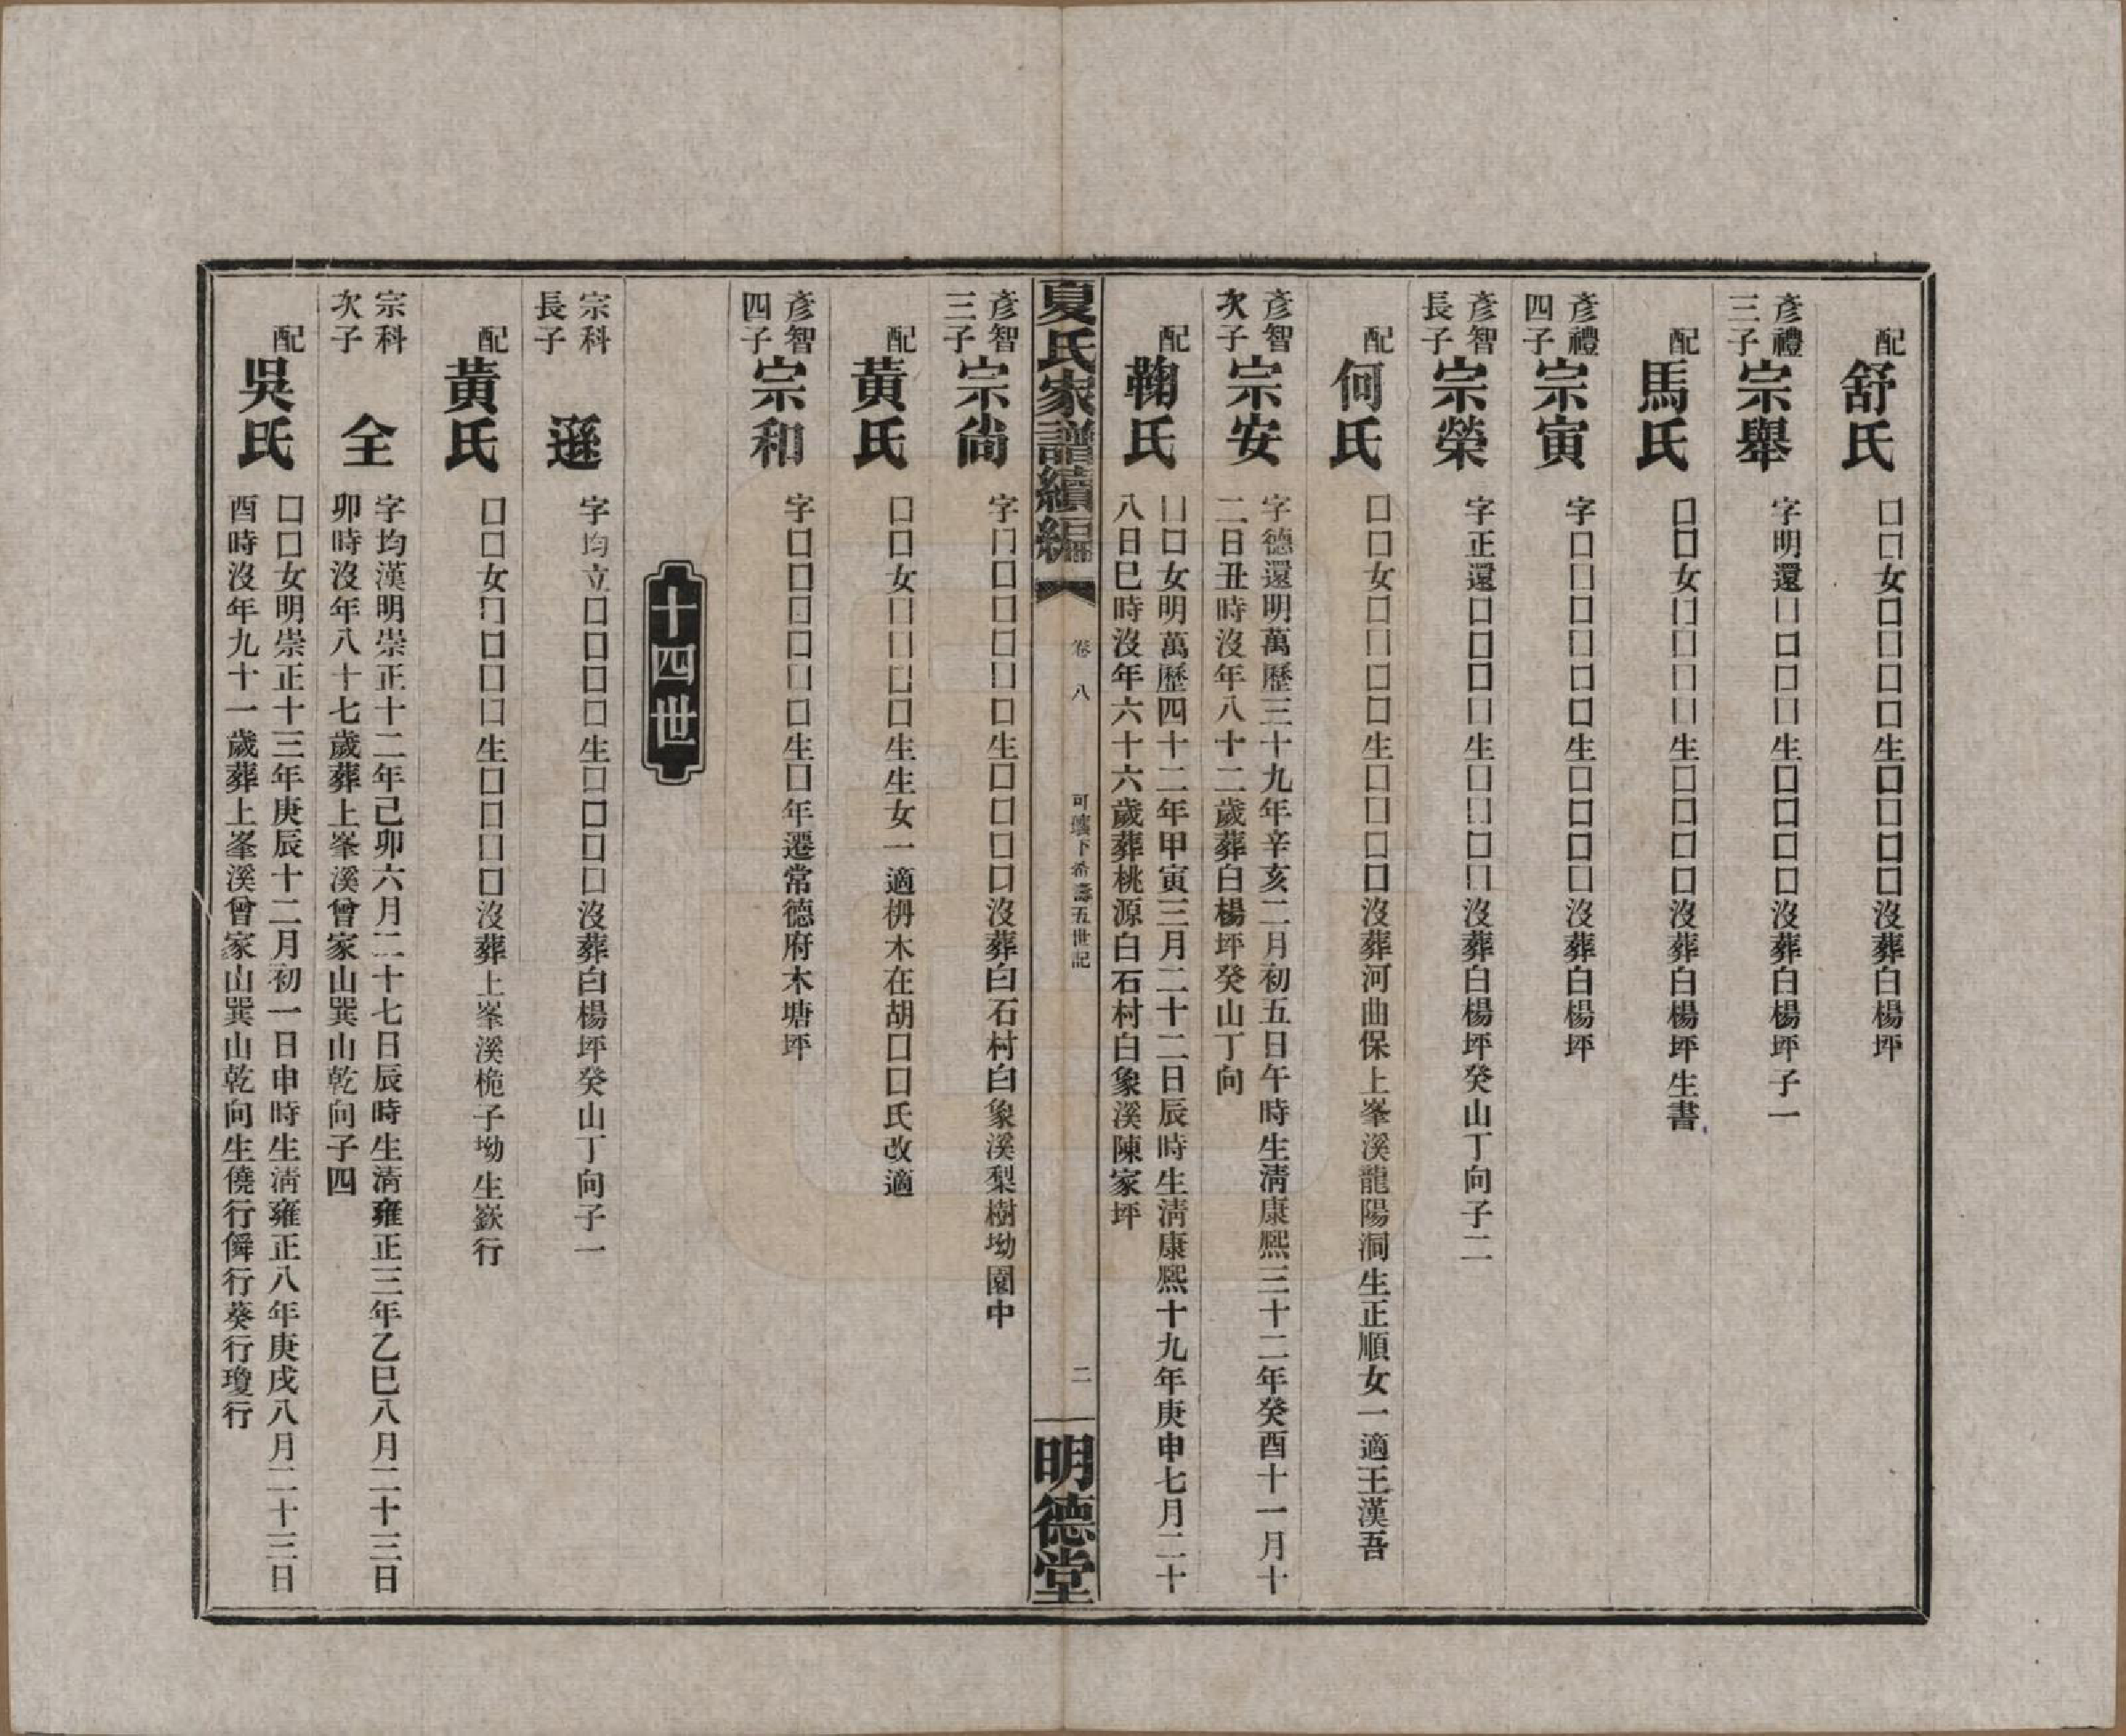 配舒氏 口口女口口口口生口口口口沒葬白楊坪
彥禮三子宗舉 字明還口口口口生口口口口沒葬白楊坪子一
配馬氏 口口女口口口口生口口口口沒葬白楊坪生書
彥禮四子宗寅 字口口口口口口生口口口口沒葬白楊坪
彥智長子宗榮 字正還口口口口生口口口口沒葬白楊坪癸山丁向子二
配何氏 口口女口口口口生口口口口沒葬河曲保上峯溪龍陽洞生正順女一適王漢吾
彥智次子宗安 字德還明萬歷三十九年辛亥二月初五日午時生淸康熙三十二年癸酉十一月十
二日丑時沒年八十二歲葬白楊坪癸山丁向
配鞠氏 口口女明萬歷四十二年甲寅三月二十二日辰時生淸康熙十九年庚申七月二十
八日巳時沒年六十六歲葬桃源白石村白象溪陳家坪
夏氏家譜續編 卷八 可瓛下希壽五世記 二 明德堂
彥智三子宗尙 字口口口口口口生口口口口沒葬白石村白象溪梨樹坳園中
配黃氏 口口女口口口口生生女一適枬木在胡口口氏改適
彥智四子宗和 字口口口口口口生口年遷常德府木塘坪
十四世
宗科長子遜 字均立口口口口生口口口口沒葬白楊坪癸山丁向子一
配黃氏 口口女口口口口生口口口口沒葬上峯溪桅子坳生嶔行
宗科次子全 字均漢明崇正十二年己卯六月二十七日辰時生淸雍正三年乙巳八月二十三日
卯時沒年八十七歲葬上峯溪曾家山巽山乾向子四
配吳氏 口口女明崇正十三年庚辰十二月初一日申時生淸雍正八年庚戌八月二十三日
酉時沒年九十一歲葬上峯溪曾家山巽山乾向生僥行僢行葵行瓊行